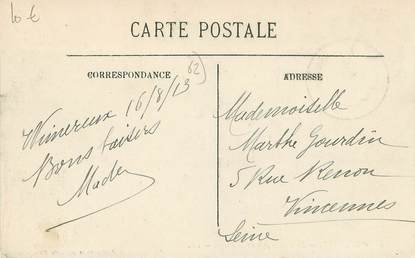 10 €
CARTE POSTALE
CORRESPONDANCE
ADRESSE
62
Wimereux 16/8/13
Bons baisers
Made
Mademoiselle
Marthe Gourdin
5 Rue Renon
Vincennes
Seine